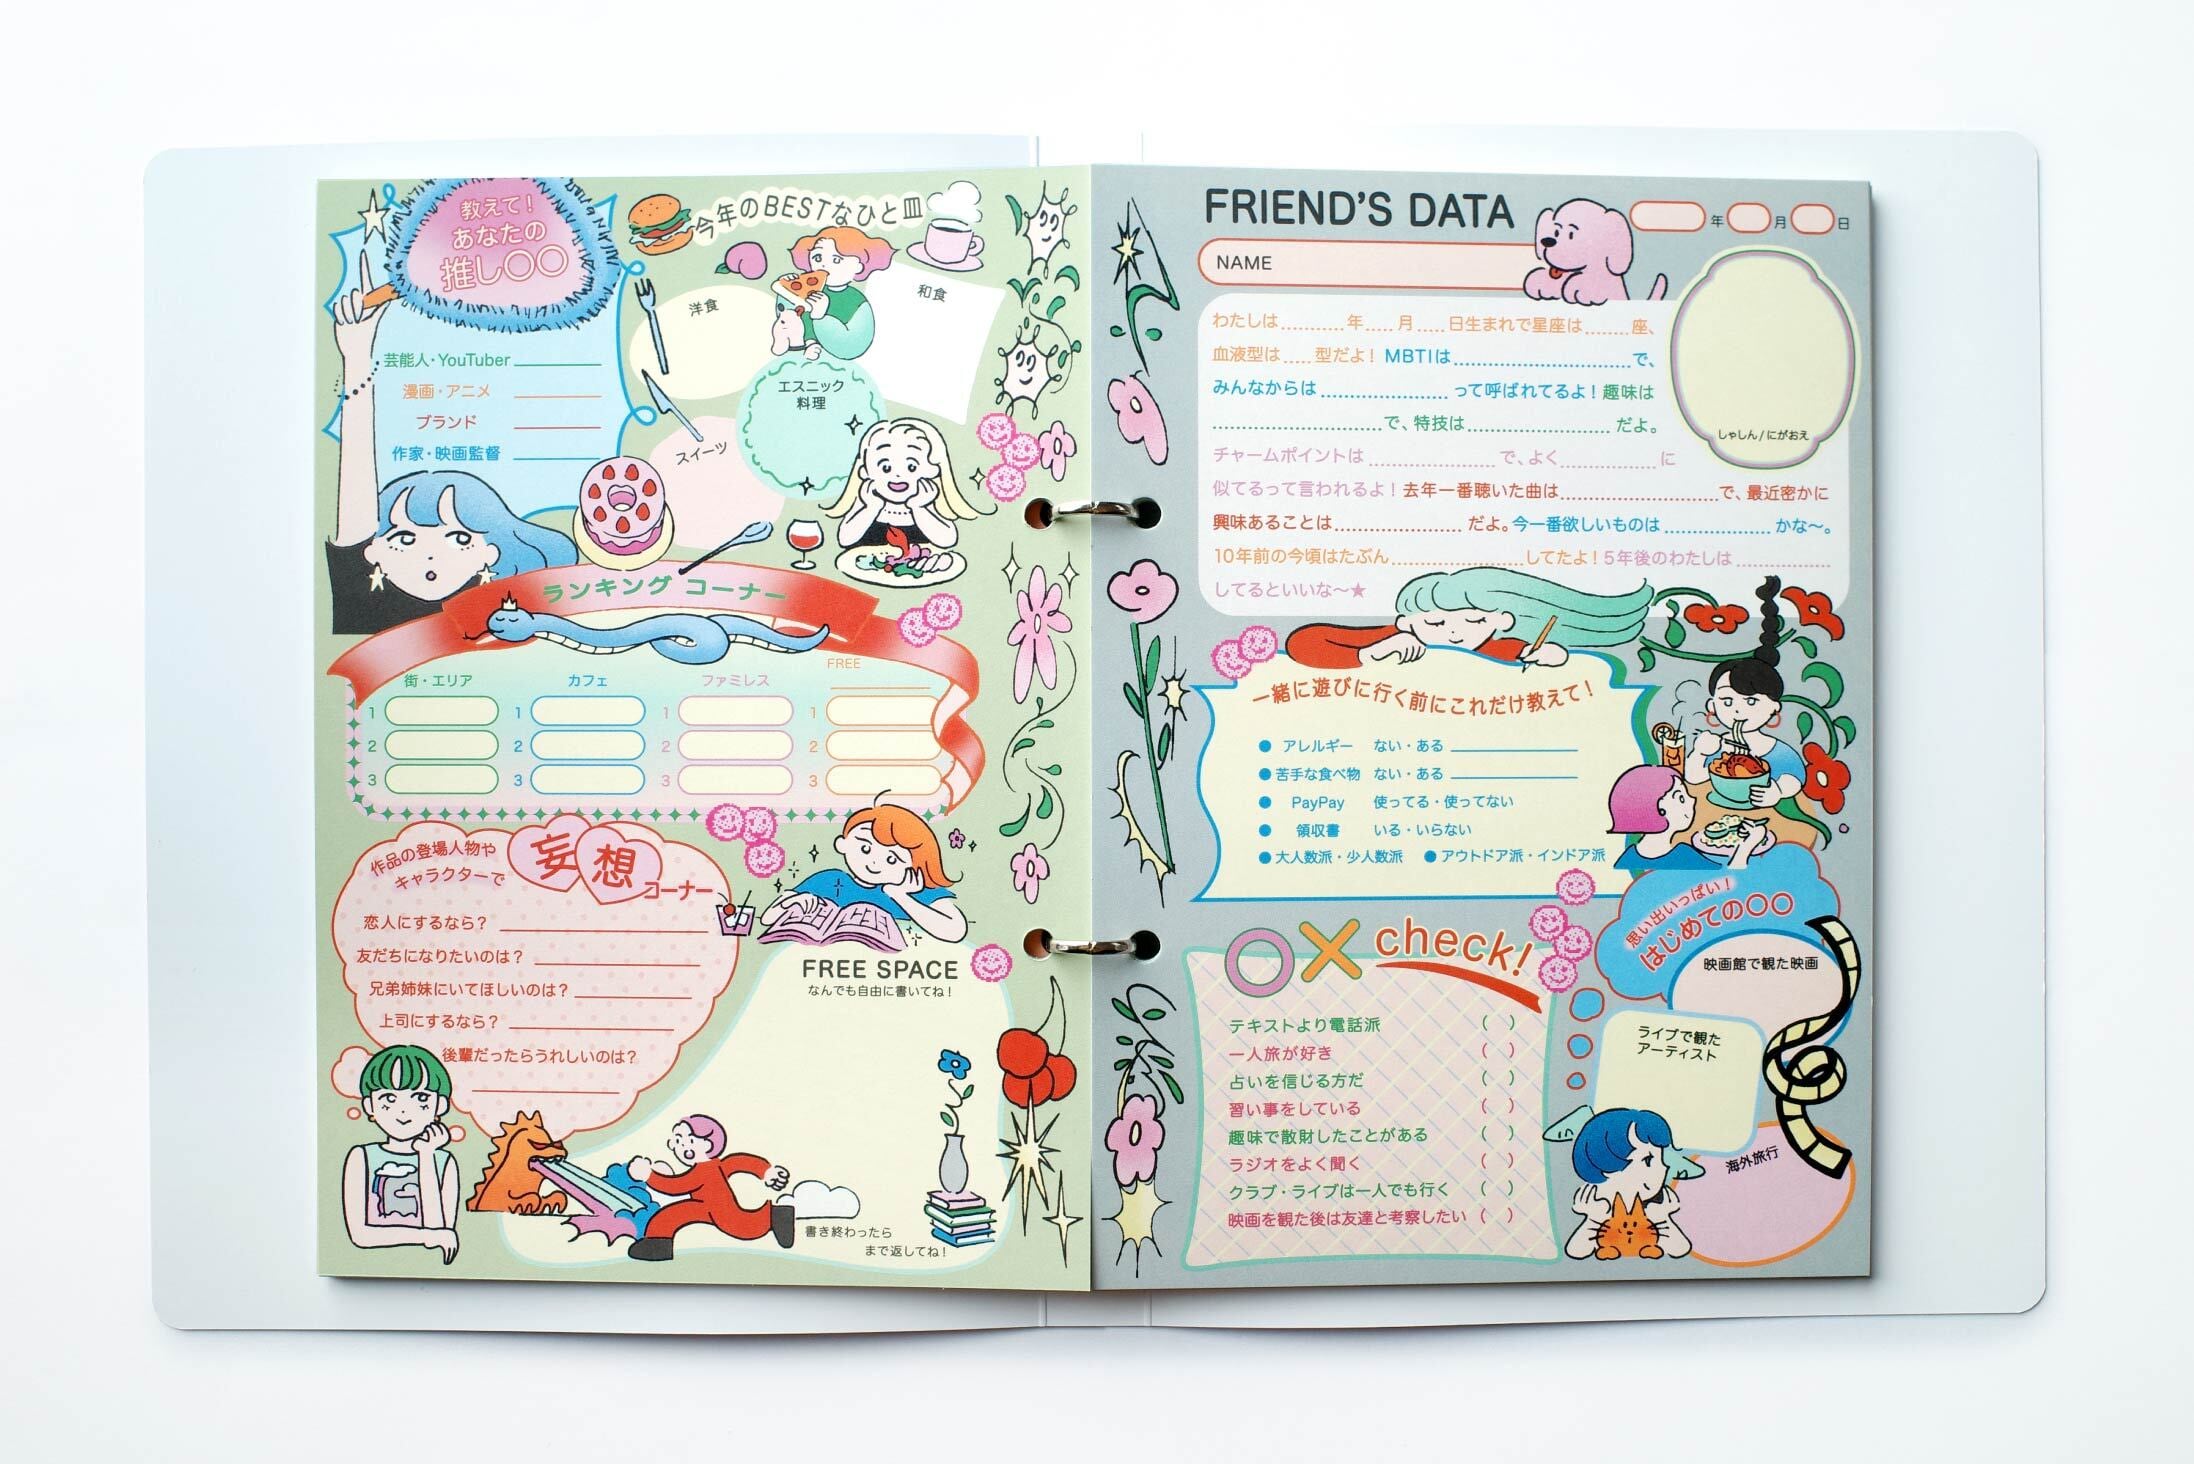 教えて！
あなたの
推し〇〇
芸能人・YouTuber
漫画・アニメ
ブランド
作家・映画監督
今年のBESTなひと皿
洋食
和食
エスニック
料理
スイーツ
ランキング コーナー
街・エリア
カフェ
ファミレス
FREE
1 1 1 1
2 2 2 2
3 3 3 3
作品の登場人物や
キャラクターで
妄想コーナー
恋人にするなら？
友だちになりたいのは？
兄弟姉妹にいてほしいのは？
上司にするなら？
後輩だったらうれしいのは？
FREE SPACE
なんでも自由に書いてね！
書き終わったら
まで返してね！
FRIEND'S DATA
年 月 日
NAME
しゃしん/にがおえ
わたしは...........年.....月.....日生まれで星座は........座、
血液型は.....型だよ！MBTIは................................で、
みんなからは.......................って呼ばれてるよ！趣味は
...............................で、特技は..........................だよ。
チャームポイントは.......................で、よく.................に
似てるって言われるよ！去年一番聴いた曲は............................で、最近密かに
興味あることは.......................だよ。今一番欲しいものは...................かな〜。
10年前の今頃はたぶん........................してたよ！5年後のわたしは.................
してるといいな〜★
一緒に遊びに行く前にこれだけ教えて！
● アレルギー ない・ある
● 苦手な食べ物 ない・ある
● PayPay 使ってる・使ってない
● 領収書 いる・いらない
● 大人数派・少人数派 ● アウトドア派・インドア派
〇×check!
テキストより電話派 （ ）
一人旅が好き （ ）
占いを信じる方だ （ ）
習い事をしている （ ）
趣味で散財したことがある （ ）
ラジオをよく聞く （ ）
クラブ・ライブは一人でも行く （ ）
映画を観た後は友達と考察したい （ ）
思い出いっぱい！
はじめての〇〇
映画館で観た映画
ライブで観た
アーティスト
海外旅行